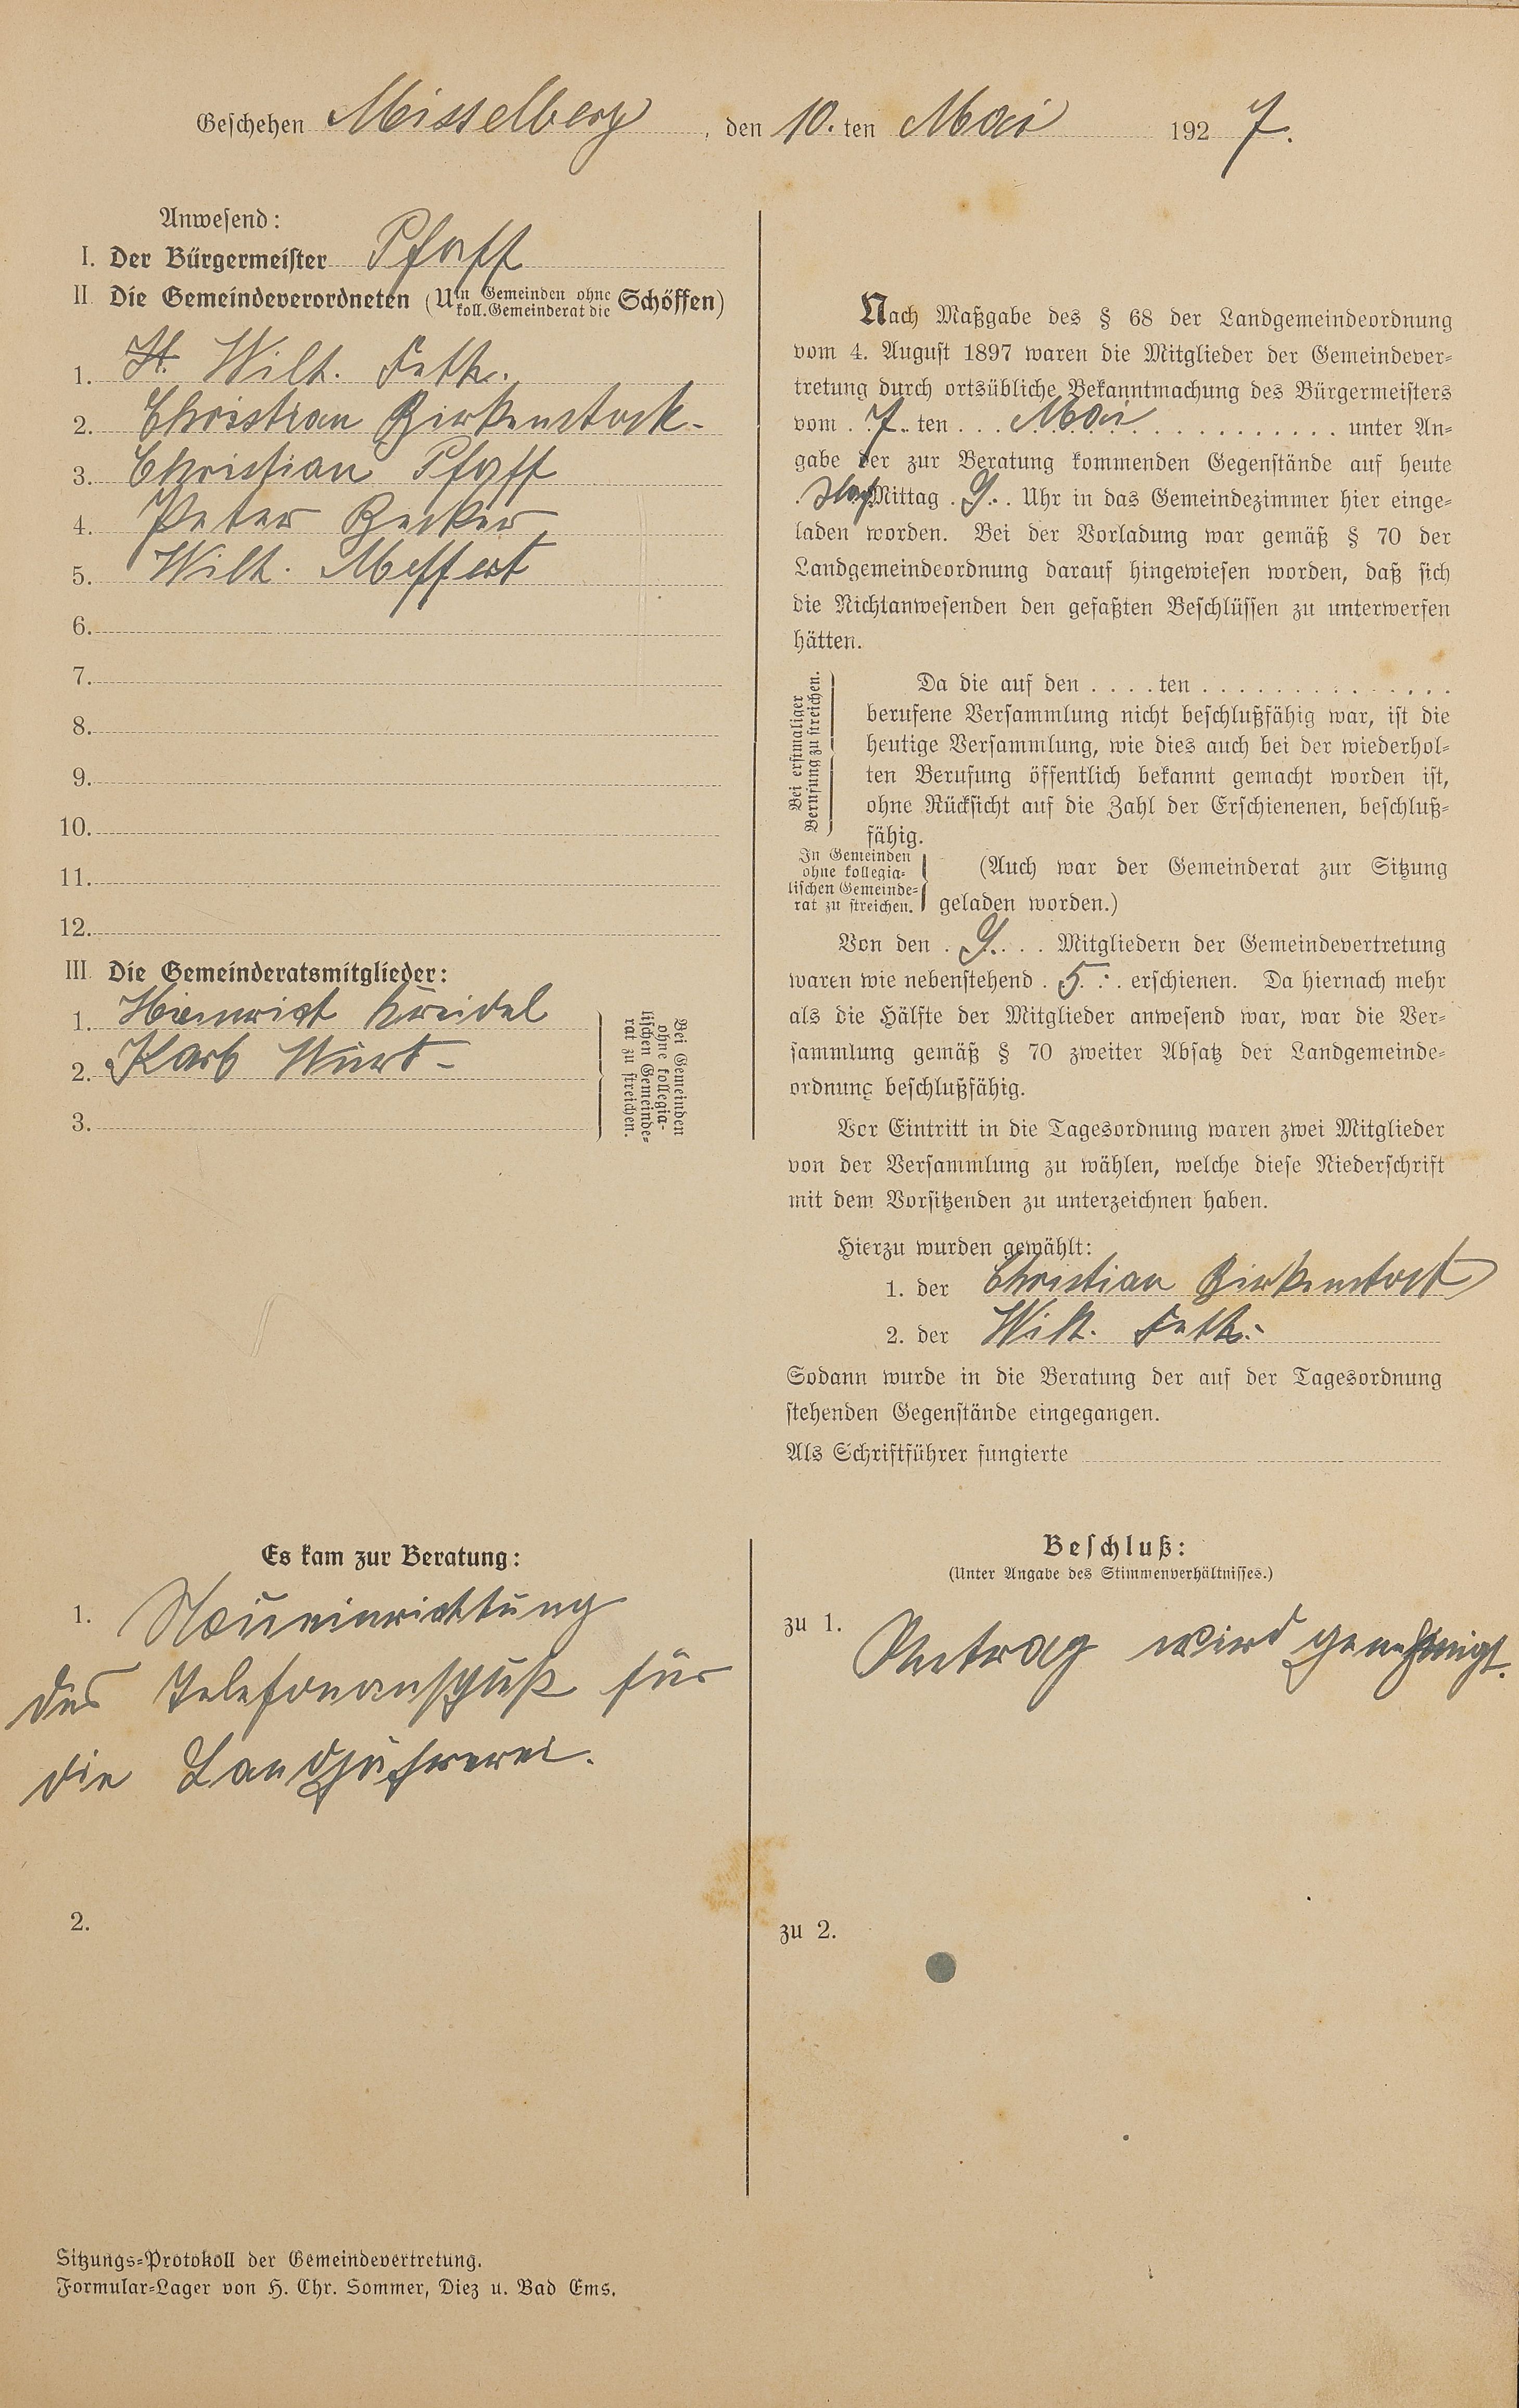 Geschehen Misselberg, den 10. ten Mai 1927.
Anwesend:
I. Der Bürgermeister Pfaff
II. Die Gemeindeverordneten (U In Gemeinden ohne koll. Gemeinderat die Schöffen)
1. H. Wilh. Feth.
2. Christian Birkenstock-
3. Christian Pfaff
4. Peter Becker
5. Wilh. Meffert
6.
7.
8.
9.
10.
11.
12.
III. Die Gemeinderatsmitglieder:
1. Hienrich Kreidel
2. Karl
3.
Bei Gemeinden
ohne kollegia-
lischen Gemeinde-
rat zu streichen.
Nach Maßgabe des § 68 der Landgemeindeordnung
vom 4. August 1897 waren die Mitglieder der Gemeindever-
tretung durch ortsübliche Bekanntmachung des Bürgermeisters
vom 7. ten Mai unter An-
gabe der zur Beratung kommenden Gegenstände auf heute
Mittag 9. Uhr in das Gemeindezimmer hier einge-
laden worden. Bei der Vorladung war gemäß § 70 der
Landgemeindeordnung darauf hingewiesen worden, daß sich
die Nichtanwesenden den gefaßten Beschlüssen zu unterwerfen
hätten.
Bei erstmaliger
Berufung zu streichen.
Da die auf den . . . . ten . . . . . . . . . . . . . .
berufene Versammlung nicht beschlußfähig war, ist die
heutige Versammlung, wie dies auch bei der wiederhol-
ten Berufung öffentlich bekannt gemacht worden ist,
ohne Rücksicht auf die Zahl der Erschienenen, beschluß-
fähig.
In Gemeinden
ohne kollegia-
lischen Gemeinde-
rat zu streichen.
(Auch war der Gemeinderat zur Sitzung
geladen worden.)
Von den 9. Mitgliedern der Gemeindevertretung
waren wie nebenstehend 5. erschienen. Da hiernach mehr
als die Hälfte der Mitglieder anwesend war, war die Ver-
sammlung gemäß § 70 zweiter Absatz der Landgemeinde-
ordnung beschlußfähig.
Vor Eintritt in die Tagesordnung waren zwei Mitglieder
von der Versammlung zu wählen, welche diese Niederschrift
mit dem Vorsitzenden zu unterzeichnen haben.
Hierzu wurden gewählt:
1. der Christian Birkenstock
2. der Wilh. Feth.-
Sodann wurde in die Beratung der auf der Tagesordnung
stehenden Gegenstände eingegangen.
Als Schriftführer fungierte
Es kam zur Beratung:
1. Neueinrichtung
des Telefonanschluß für
die Landjägerei.
2.
Beschluß:
(Unter Angabe des Stimmenverhältnisses.)
zu 1. Antrag wird genehmigt.
zu 2.
Sitzungs-Protokoll der Gemeindevertretung.
Formular-Lager von H. Chr. Sommer, Diez u. Bad Ems.